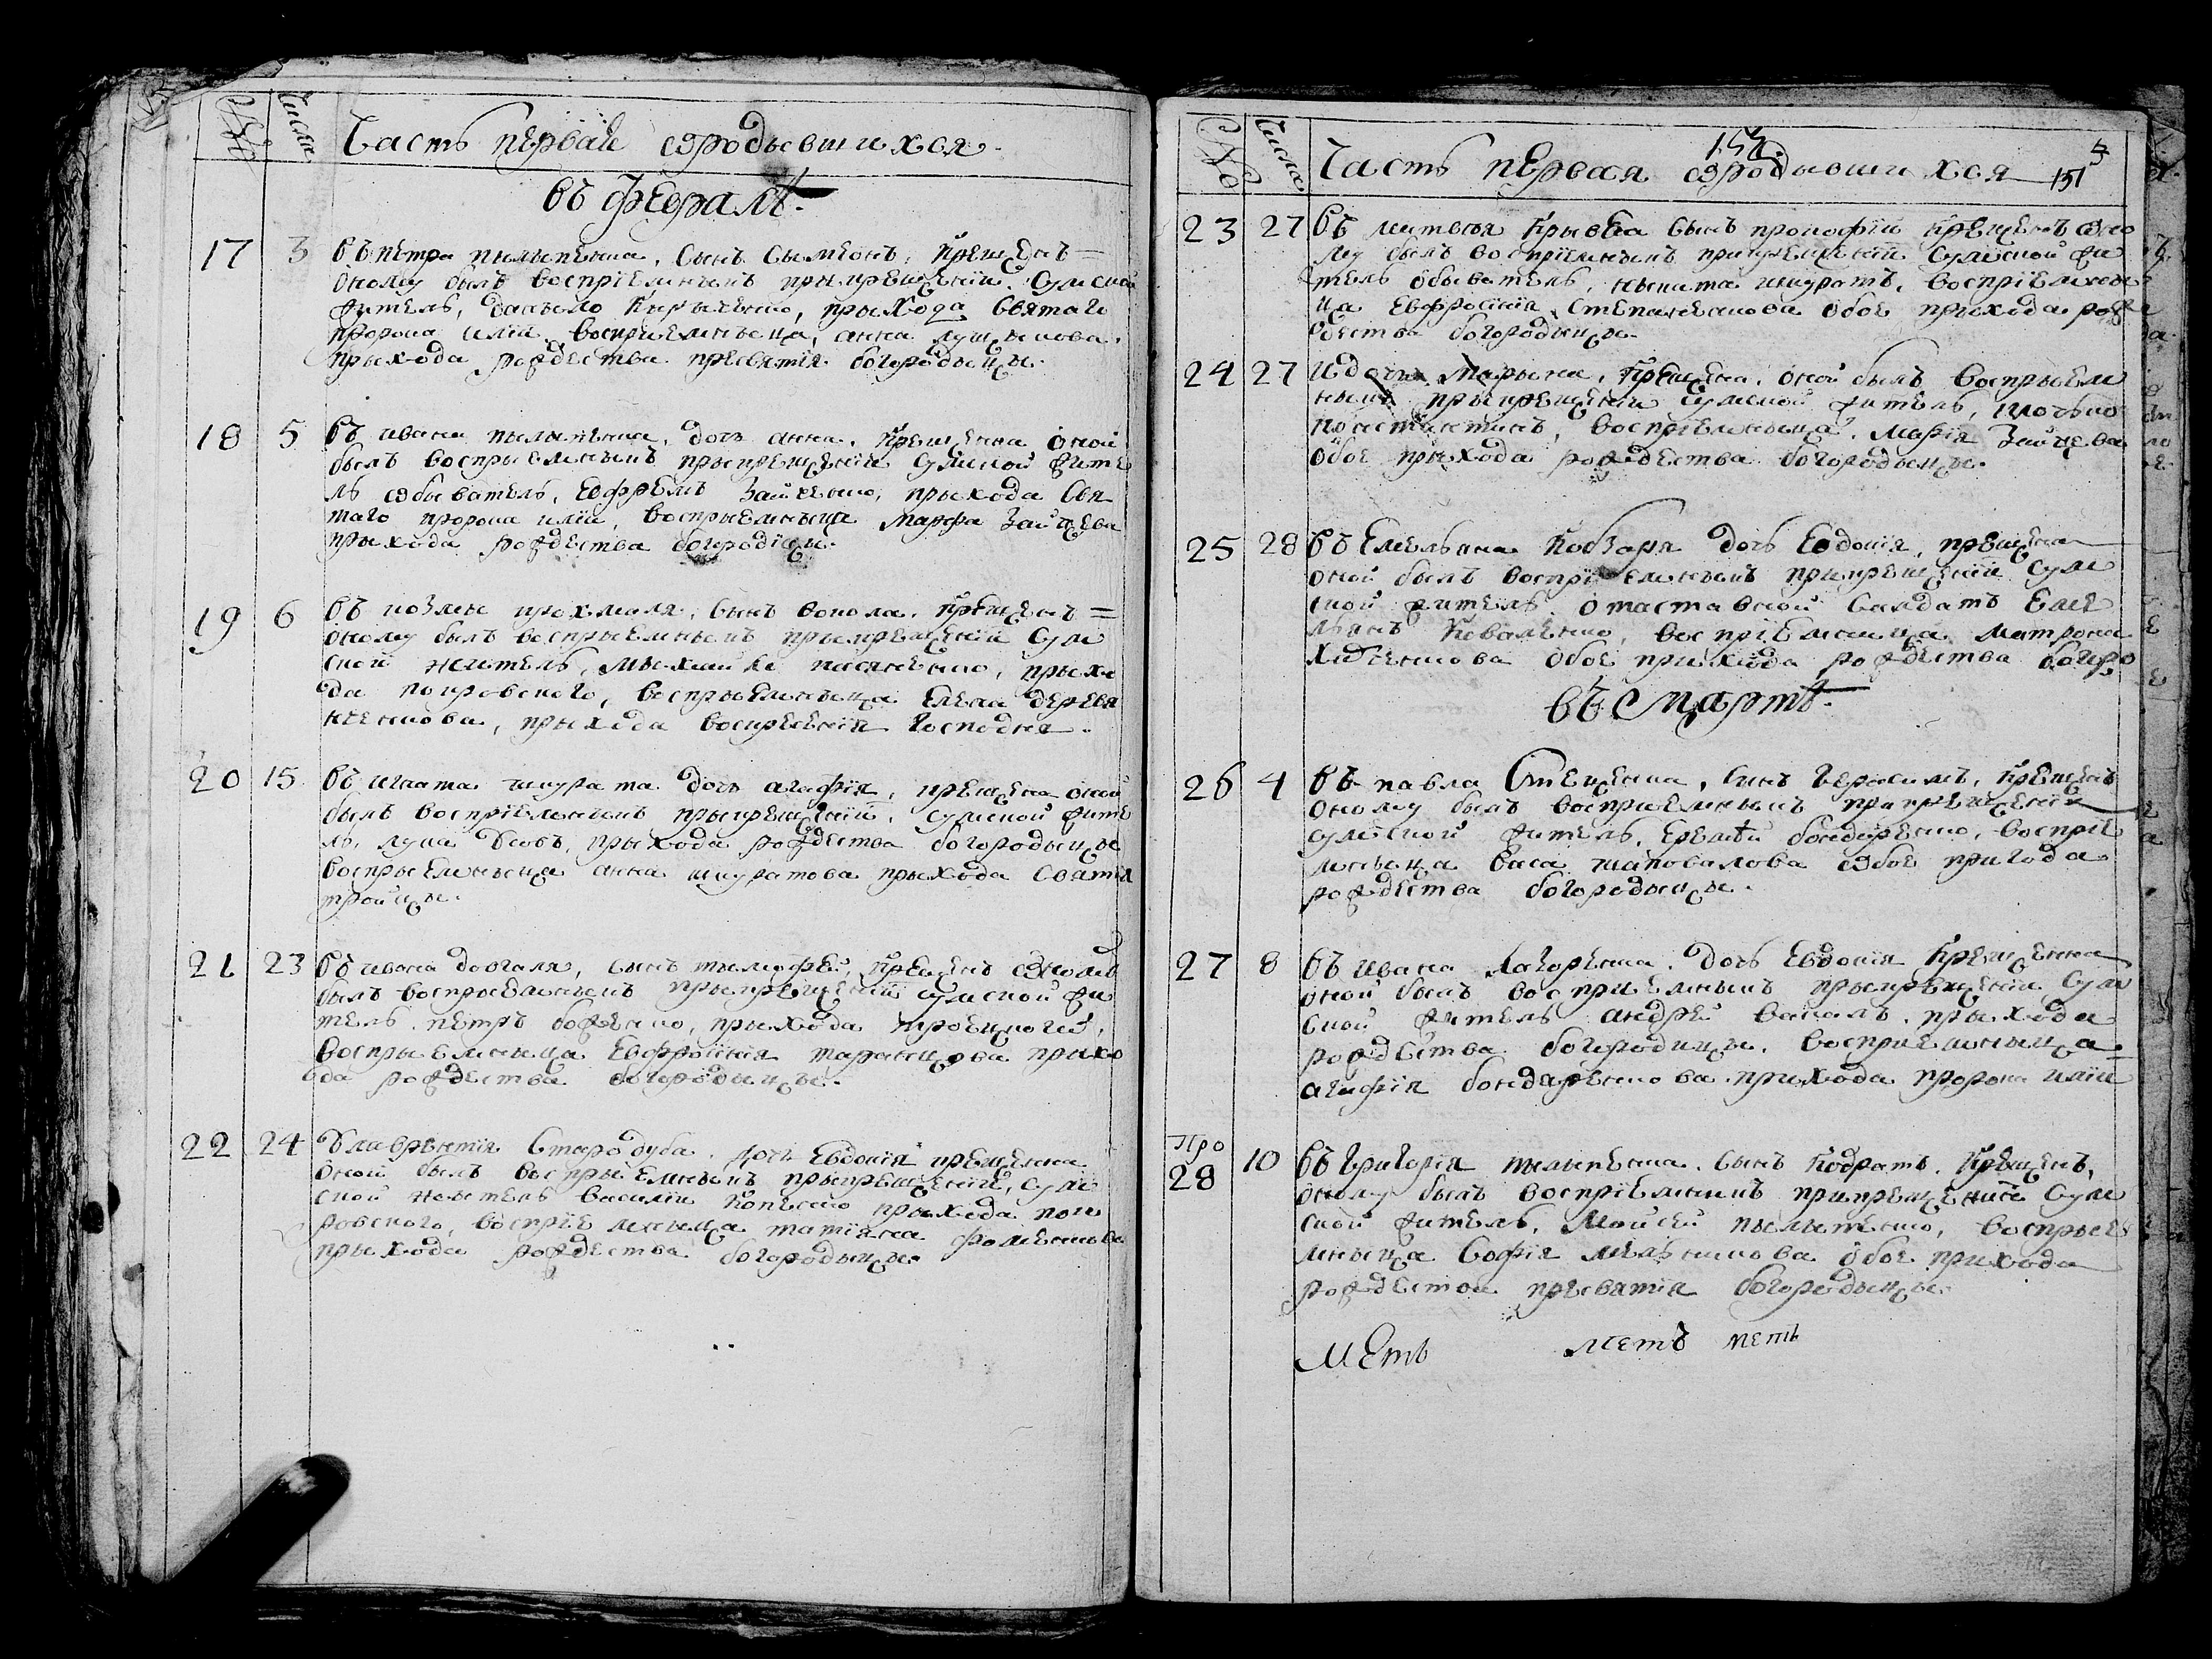 Число
Часть первая ѡродывшихся
въ февралѣ.
17 3 въ петра пылыпенка, сынъ сымеонъ, крещенъ =
оному былъ восприемныкъ прыкрещеніи, сумской
житель, данъыло кырыченко, прыхода святаго
пророка иліи, восприемныца, анна луценкова,
прыхода рождества пресвятія богородыцы.
18 5 въ ивана пылыпенка, дочъ анна, крещенна оной
былъ воспрыемныкъ прыкрещеніи сумской жите
ль ѡбыватель, ефремъ зайченко, прыхода свя
таго пророка иліи, воспрыемныца марфа зайцева
прыхода рождества богородіцы.
19 6 въ козмы крохмаля, сынъ вокола, крещенъ =
оному былъ воспрыемныкъ прыкрещеніи сум
ской житель, мыхайло касяненко, прыхо
да покровского, воспрыемныца елена деревя
нченкова, прыхода воскресенія господня.
20 15 въ игната шкурата дочъ агафія, крещена оной
былъ воспріемныкъ прыкрещеніи, сумской жите
ль, лука бѡвъ, прыхода рождества богородыцы
воспрыемныца анна шкуратова прыхода святія
тройцы.
21 23 въ ивана довгаля, сынъ тымофей, крещенъ ѡному
былъ воспрыемныкъ прыкрещеніи сумской жи
тель, петръ боженко, прыхода троецкогѡ,
воспрыемныца евфросінія таранцова прыхо
да рождества богородыцы.
22 24 Ѵ лаврентія стародуба, дочъ евдокія крещенна
оной былъ воспрыемныкъ прыкрещеніи, сум
ской жытель василіи копенко прыхода пок
ровского, воспріемныца татіяна фоменкова
прыхода рождества богородыцы.
Число
Часть первая ѡродывшихся 151
23 27 въ матвѣя крывца сынъ прокофіи крещенъ ѡно
му былъ воспріемныкъ прикрещеніи сумской жи
тель обыватель, никита шкуратъ, воспріемны
ца евфросінія степаненкова обое прихода рож
дества богородыцы.
24 27 и дочка марына, крещена, оной былъ воспрыем
ныкъ прыкрещеніи сумской житель,
константинъ, воспріемныца, марія зайцева
обое прыхода рождества богородыцы.
25 28 въ емельяна кобзаря дочъ евдокія, крещена
оной былъ воспріемныкъ прикрещеніи сум
ской житель отаставной салдатъ еме
льянъ коваленко, воспріемница матрона
хиженкова обое прихода рождества богоро
въ мартѣ.
26 4 въ павла стеценка, синъ герасимъ, крещенъ
оному былъ восприемныкъ прикрещеніи
сумской житель, еремѣй бондаренко, воспріе
мныца васа шаповалова ѡбое прихода
рождества богородыцы.
27 8 въ ивана лазоренка дочъ евдокія крещенна
оной былъ восприемныкъ прыкрещеніи, сум
ской житель андрей вакалъ, прыхода
рождества богородицы, восприемныца
агафія бондаренкова прихода пророка иліи
28 10 въ григорія пылыпенка, сынъ кодратъ, крещенъ,
оному былъ воспріемныкъ прикрещеніи сум
ской житель, мойсей пылыпенко, воспрые
мныца софія мельникова обое прихода
рождества пресвятія богородыцы.
метъ метъ метъ